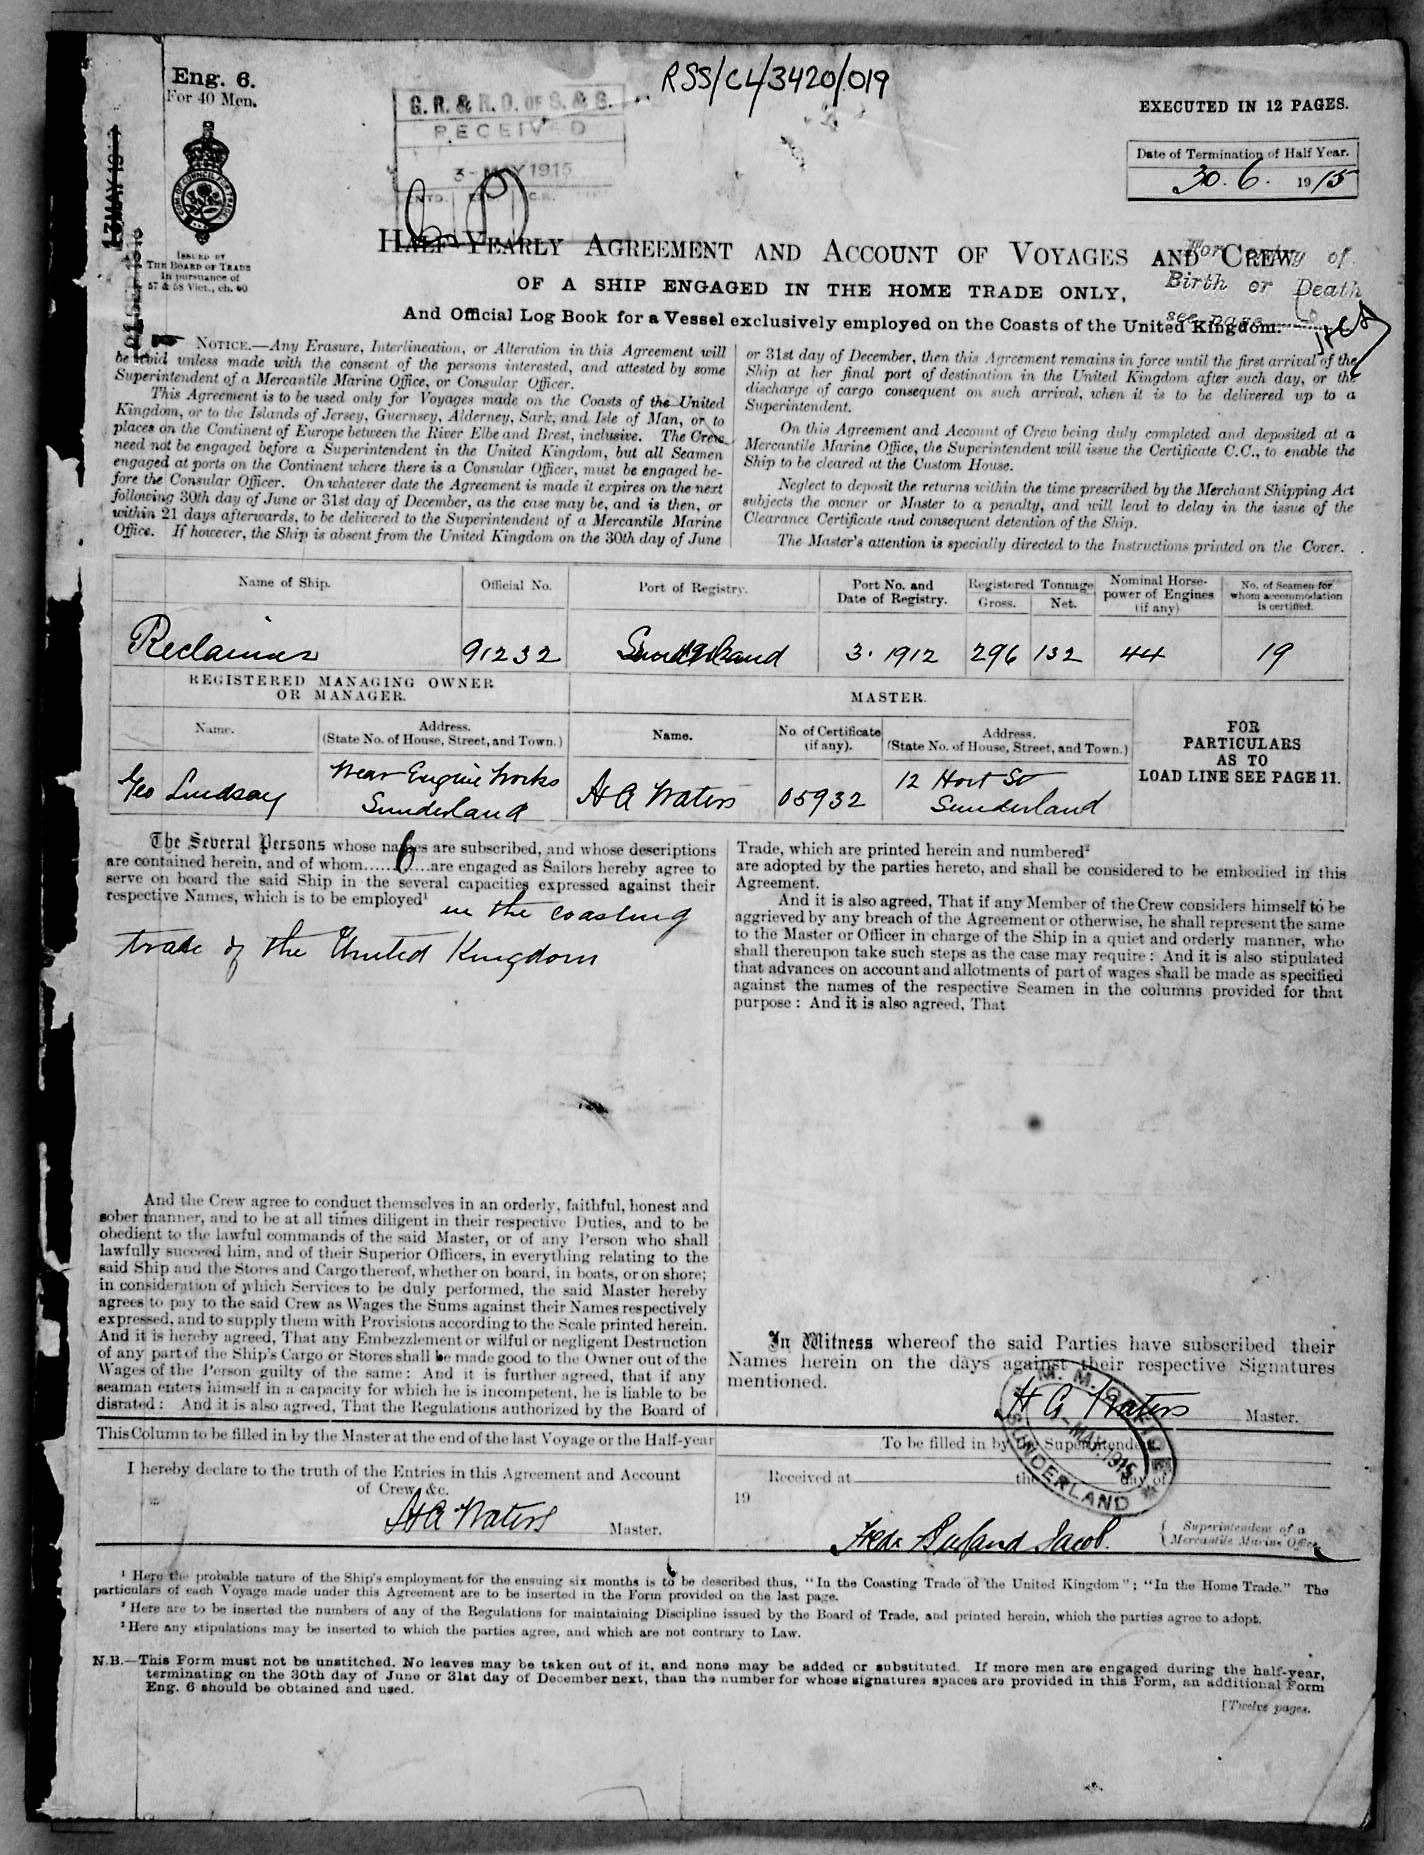 Eng. 6.
For 40 Men.
RSS/CL/3420/019
G. R. & R. O. OF S. & S.
RECEIVED
3 - MAY 1915
EXECUTED IN 12 PAGES.
Date of Termination of Half Year.
30. 6. 1915
13 MAY 19
ISSUED BY
THE BOARD OF TRADE
In pursuance of
57 & 58 Vict., ch. 60
HALF-YEARLY AGREEMENT AND ACCOUNT OF VOYAGES AND CREW
OF A SHIP ENGAGED IN THE HOME TRADE ONLY,
And Official Log Book for a Vessel exclusively employed on the Coasts of the United Kingdom.
For entry of
Birth or Death
see page
NOTICE.—Any Erasure, Interlineation, or Alteration in this Agreement will
be void unless made with the consent of the persons interested, and attested by some
Superintendent of a Mercantile Marine Office, or Consular Officer.
This Agreement is to be used only for Voyages made on the Coasts of the United
Kingdom, or to the Islands of Jersey, Guernsey, Alderney, Sark, and Isle of Man, or to
places on the Continent of Europe between the River Elbe and Brest, inclusive. The Crew
need not be engaged before a Superintendent in the United Kingdom, but all Seamen
engaged at ports on the Continent where there is a Consular Officer, must be engaged be-
fore the Consular Officer. On whatever date the Agreement is made it expires on the next
following 30th day of June or 31st day of December, as the case may be, and is then, or
within 21 days afterwards, to be delivered to the Superintendent of a Mercantile Marine
Office. If however, the Ship is absent from the United Kingdom on the 30th day of June
or 31st day of December, then this Agreement remains in force until the first arrival of the
Ship at her final port of destination in the United Kingdom after such day, or the
discharge of cargo consequent on such arrival, when it is to be delivered up to a
Superintendent.
On this Agreement and Account of Crew being duly completed and deposited at a
Mercantile Marine Office, the Superintendent will issue the Certificate C.C., to enable the
Ship to be cleared at the Custom House.
Neglect to deposit the returns within the time prescribed by the Merchant Shipping Act
subjects the owner or Master to a penalty, and will lead to delay in the issue of the
Clearance Certificate and consequent detention of the Ship.
The Master's attention is specially directed to the Instructions printed on the Cover.
Name of Ship. Official No. Port of Registry. Port No. and Date of Registry. Registered Tonnage Gross. Net. Nominal Horse-power of Engines (if any) No. of Seamen for whom accommodation is certified.
Reclaimer 91232 Sunderland 3. 1912 296 132 44 19
REGISTERED MANAGING OWNER
OR MANAGER.
MASTER.
Name. Address. (State No. of House, Street, and Town.) Name. No. of Certificate (if any). Address. (State No. of House, Street, and Town.)
FOR
PARTICULARS
AS TO
LOAD LINE SEE PAGE 11.
Geo Lindsay Wear Engine Works Sunderland H A Waters 05932 12 Hort St Sunderland
The Several Persons whose names are subscribed, and whose descriptions
are contained herein, and of whom......6......are engaged as Sailors hereby agree to
serve on board the said Ship in the several capacities expressed against their
respective Names, which is to be employed¹ in the coasting
trade of the United Kingdom
And the Crew agree to conduct themselves in an orderly, faithful, honest and
sober manner, and to be at all times diligent in their respective Duties, and to be
obedient to the lawful commands of the said Master, or of any Person who shall
lawfully succeed him, and of their Superior Officers, in everything relating to the
said Ship and the Stores and Cargo thereof, whether on board, in boats, or on shore;
in consideration of which Services to be duly performed, the said Master hereby
agrees to pay to the said Crew as Wages the Sums against their Names respectively
expressed, and to supply them with Provisions according to the Scale printed herein.
And it is hereby agreed, That any Embezzlement or wilful or negligent Destruction
of any part of the Ship's Cargo or Stores shall be made good to the Owner out of the
Wages of the Person guilty of the same: And it is further agreed, that if any
seaman enters himself in a capacity for which he is incompetent, he is liable to be
disrated: And it is also agreed, That the Regulations authorized by the Board of
Trade, which are printed herein and numbered²
are adopted by the parties hereto, and shall be considered to be embodied in this
Agreement.
And it is also agreed, That if any Member of the Crew considers himself to be
aggrieved by any breach of the Agreement or otherwise, he shall represent the same
to the Master or Officer in charge of the Ship in a quiet and orderly manner, who
shall thereupon take such steps as the case may require: And it is also stipulated
that advances on account and allotments of part of wages shall be made as specified
against the names of the respective Seamen in the columns provided for that
purpose: And it is also agreed, That
In Witness whereof the said Parties have subscribed their
Names herein on the days against their respective Signatures
mentioned.
H A Waters Master.
M. M. OFFICE
- MAY. 1915
SUNDERLAND
This Column to be filled in by the Master at the end of the last Voyage or the Half-year
I hereby declare to the truth of the Entries in this Agreement and Account
of Crew, &c.
H A Waters Master.
To be filled in by the Superintendent.
Received at the day of
19
Superintendent of a
Mercantile Marine Office.
¹ Here the probable nature of the Ship's employment for the ensuing six months is to be described thus, "In the Coasting Trade of the United Kingdom"; "In the Home Trade." The
particulars of each Voyage made under this Agreement are to be inserted in the Form provided on the last page.
² Here are to be inserted the numbers of any of the Regulations for maintaining Discipline issued by the Board of Trade, and printed herein, which the parties agree to adopt.
³ Here any stipulations may be inserted to which the parties agree, and which are not contrary to Law.
N.B.—This Form must not be unstitched. No leaves may be taken out of it, and none may be added or substituted. If more men are engaged during the half-year,
terminating on the 30th day of June or 31st day of December next, than the number for whose signatures spaces are provided in this Form, an additional Form
Eng. 6 should be obtained and used.
[Twelve pages.